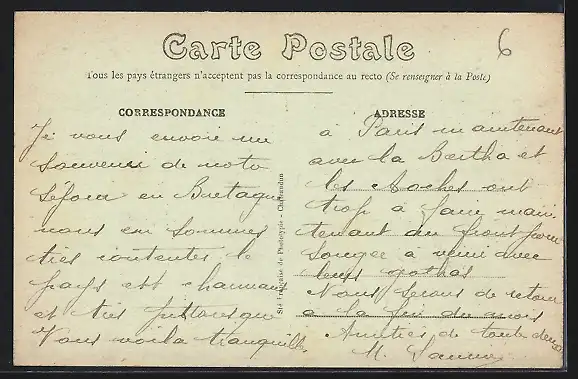 Carte Postale
6
Tous les pays étrangers n'acceptent pas la correspondance au recto (Se renseigner à la Poste)
CORRESPONDANCE
Je vous envoie un
souvenir de notre
séjour en Bretagne
nous en sommes
très contentes le
pays est charmant
et très pittoresque
Vous voilà tranquilles
Sté Française de Phototypie - Chateaudun
ADRESSE
à Paris maintenant
avec la Bertha et
les Boches ont
trop à faire main
tenant au front pour
songer à venir avec
leurs gothas
Nous serons de retour
à la fin du mois
Amitiés de toutes deux
M.